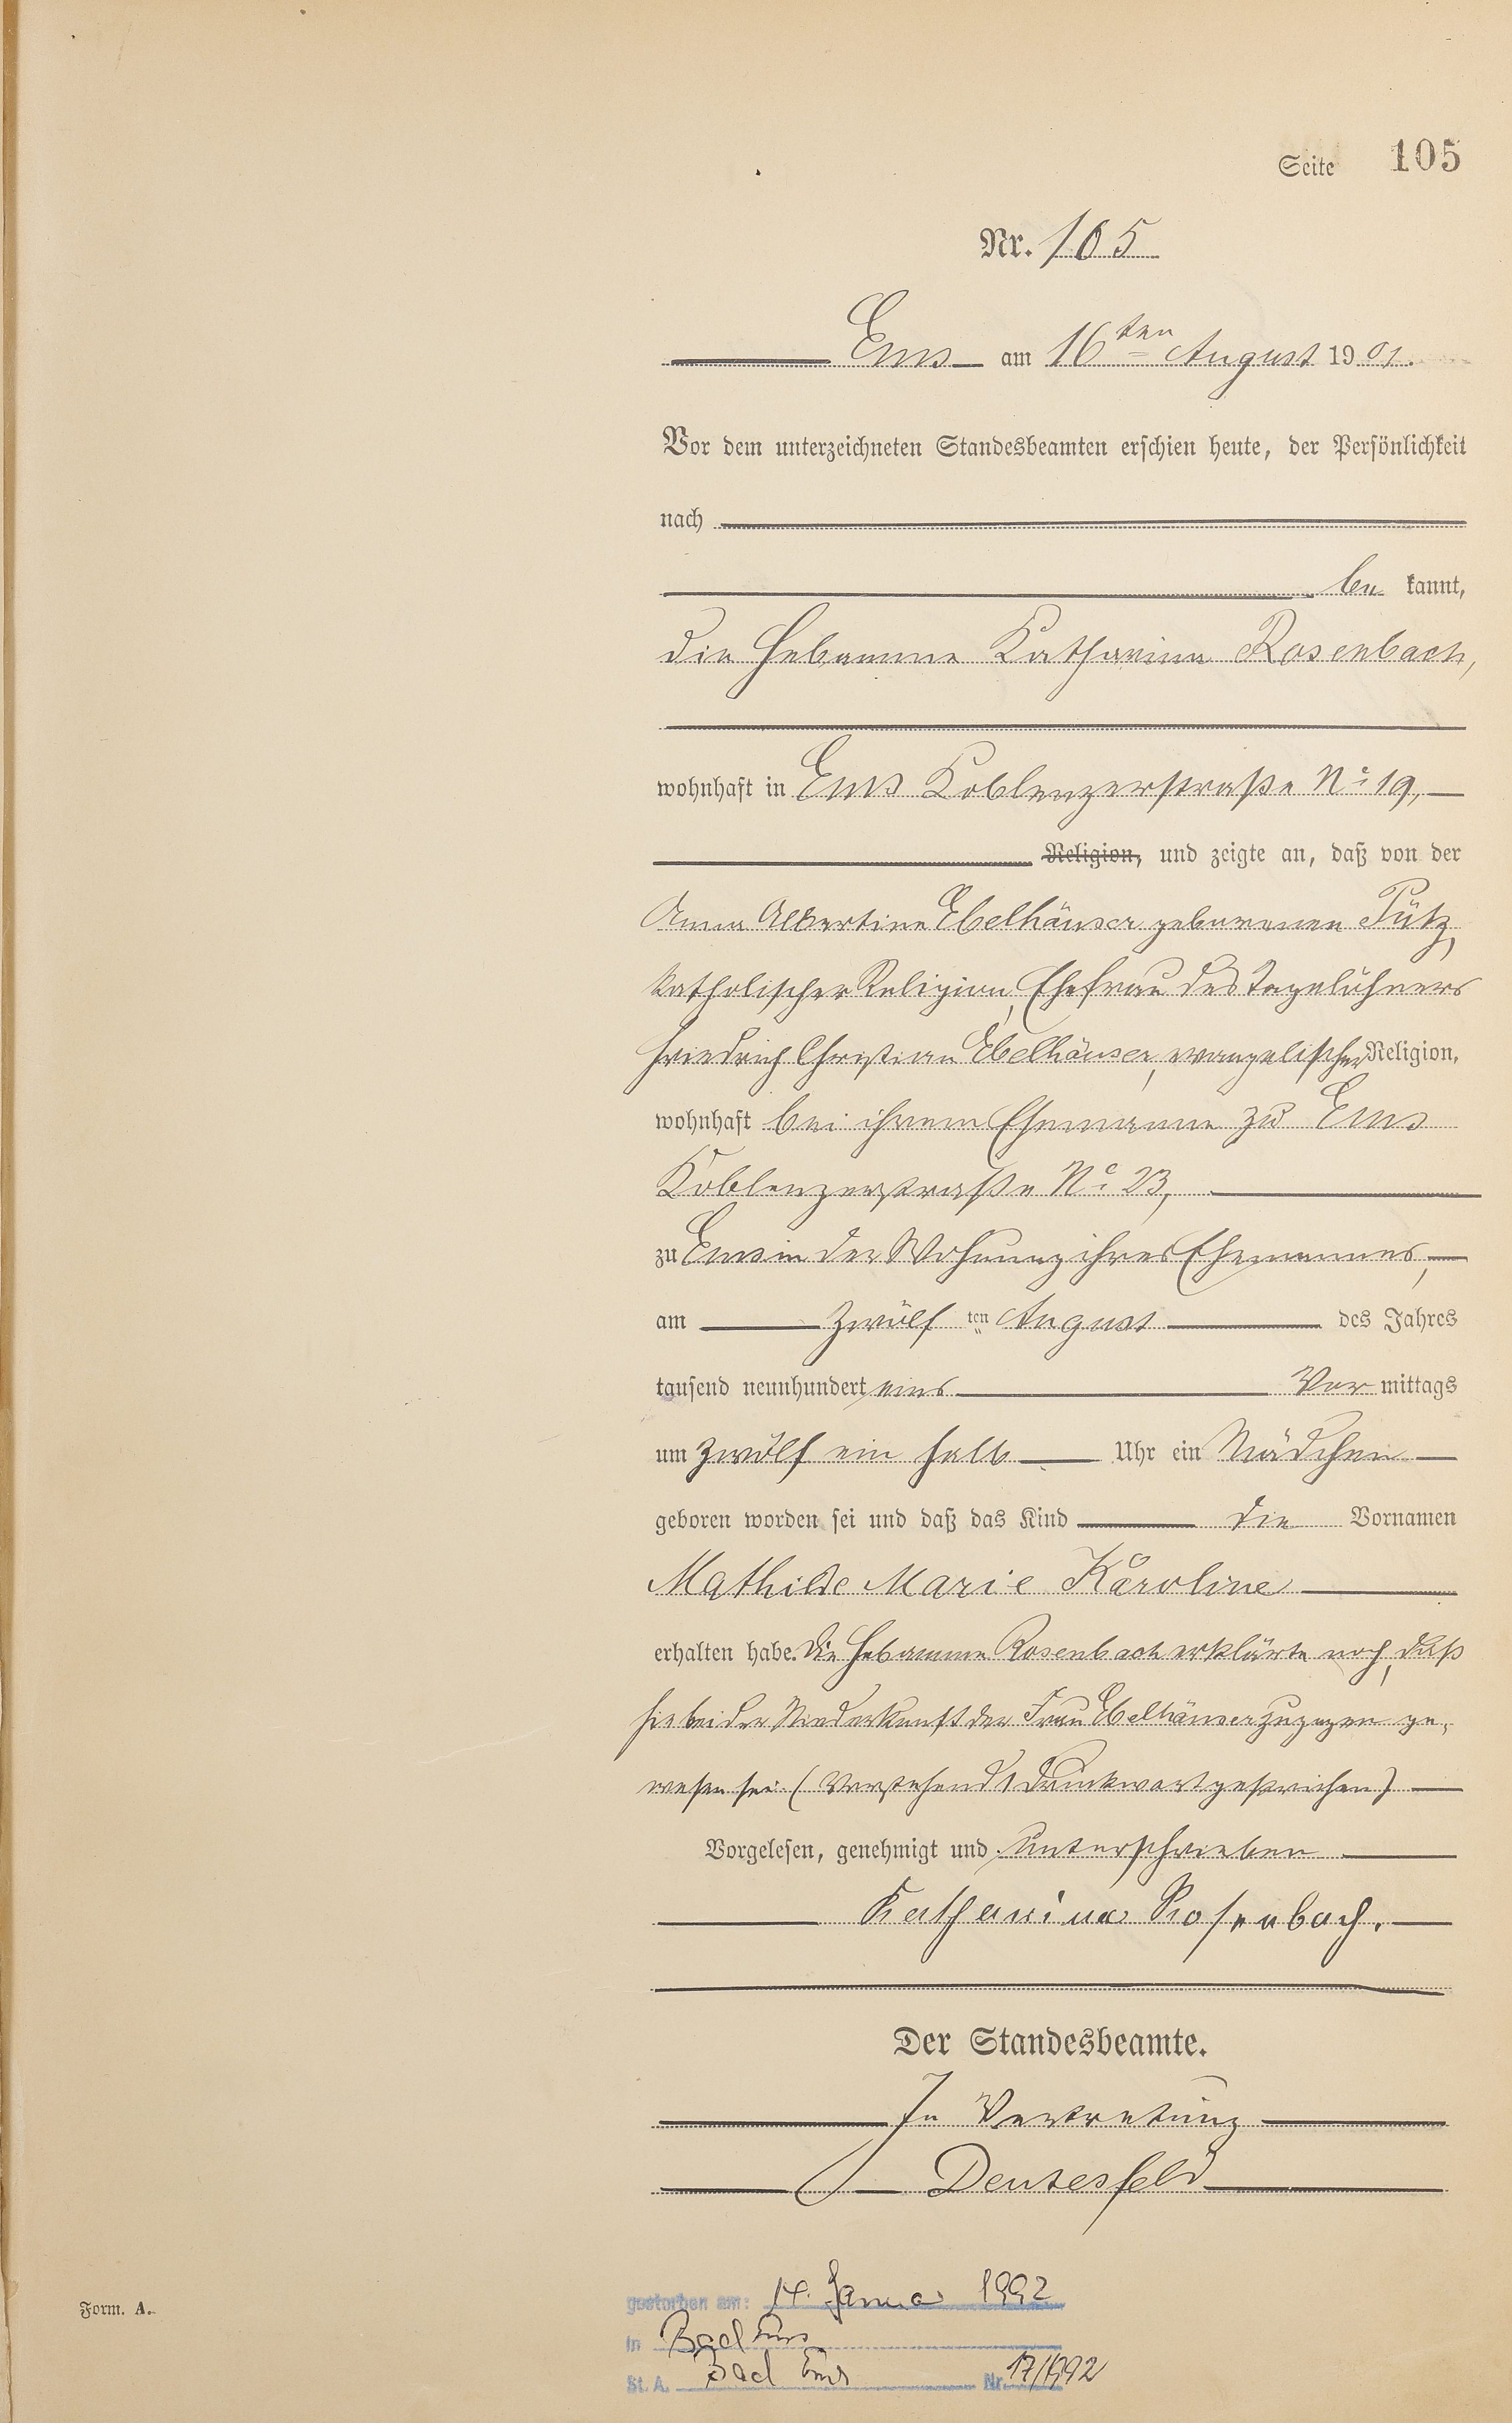 Seite 105
Nr. 105
Ems am 16ten August 1901.
Vor dem unterzeichneten Standesbeamten erschien heute, der Persönlichkeit
nach
be kannt,
die Hebamme Katharina Rosenbach,
wohnhaft in Ems Koblenzerstraße No 19,
Religion, und zeigte an, daß von der
Anna Albertine Ebelhäuser geborenen Pütz,
katholischer Religion, Ehefrau des Tagelöhners
Friedrich Christian Ebelhäuser, evangelischer Religion,
wohnhaft bei ihrem Ehemanne zu Ems
Koblenzerstraße No 23,
zu Ems in der Wohnung ihres Ehemannes,
am zwölf ten August des Jahres
tausend neunhundert eins Vor mittags
um zwölf ein halb Uhr ein Mädchen
geboren worden sei und daß das Kind die Vornamen
Mathilde Marie Karoline
erhalten habe. Die Hebamme Rosenbach erklärte noch, daß
sie bei der Niederkunft der Frau Ebelhäuser zugegen ge-
wesen sei. (Vorstehend 1 Druckwort gestrichen)
Vorgelesen, genehmigt und unterschrieben
Katharina Rosenbach.
Der Standesbeamte.
In Vertretung
Deutesfeld
gestorben am: 14. Januar 1992
in Bad Ems
St. A. Bad Ems Nr. 17/1992
Form. A.